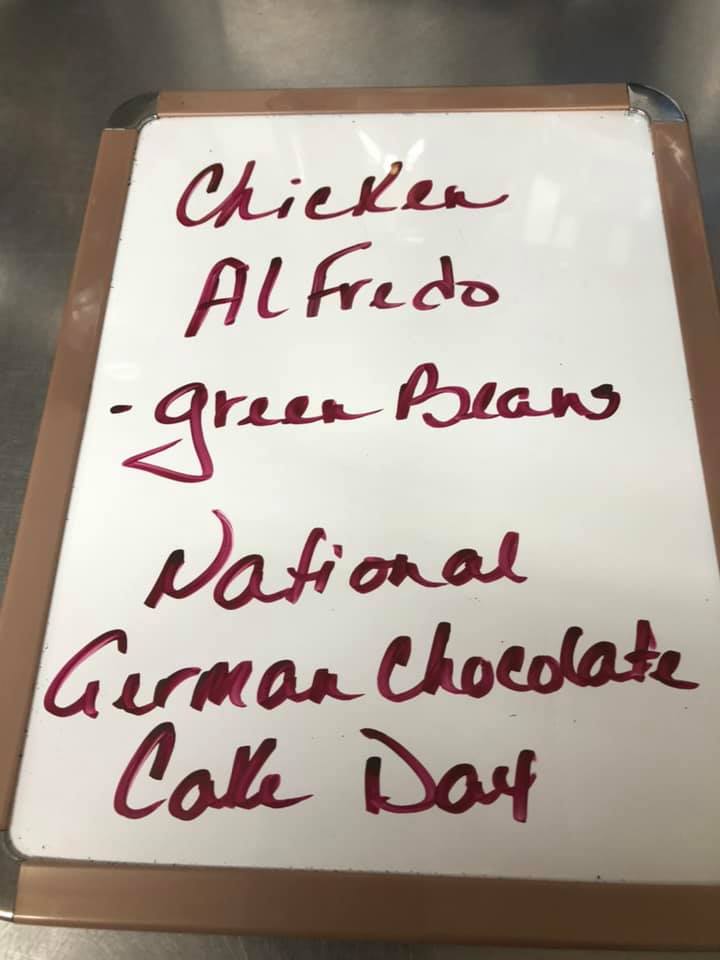 Chicken
Alfredo
- green Beans
National
German Chocolate
Cake Day